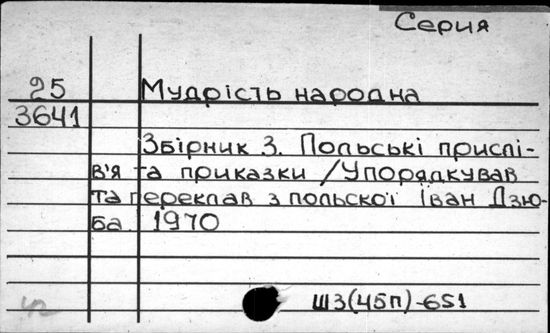 Серия
25 Мудрість народна
3641
Збірник 3. Польські прислі-
в'я та приказки /Упорядкував
та переклав з польскої Іван Дзю-
ба 1970
Ш3(45п)-651